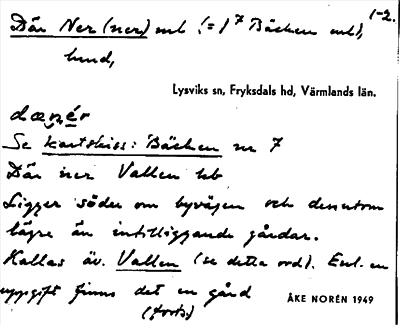 1-2.
Där Ner (ner) mb (=) 7 Bäcken mb),
hmd,
Lysviks sn, Fryksdals hd, Värmlands län.
dæ nér
Se kartskiss: Bäcken nr 7
Där ner Vallen hb
Ligger söder om byvägen och dessutom
lägre än intilliggande gårdar.
Kallas äv. Vallen (se detta ord). Enl. en
uppgift finns det en gård
(forts)
ÅKE NORÉN 1949